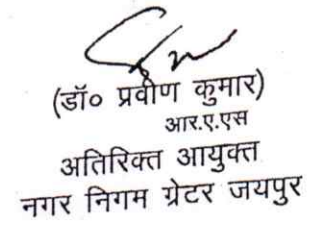 (डॉ० प्रवीण कुमार)
आर.ए.एस
अतिरिक्त आयुक्त
नगर निगम ग्रेटर जयपुर